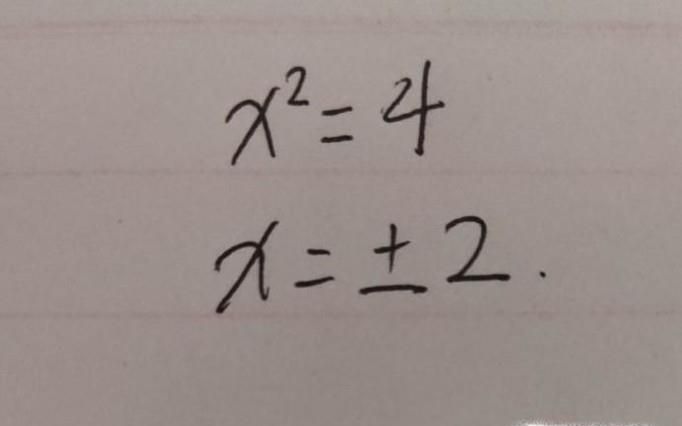 x² = 4
x = ± 2.